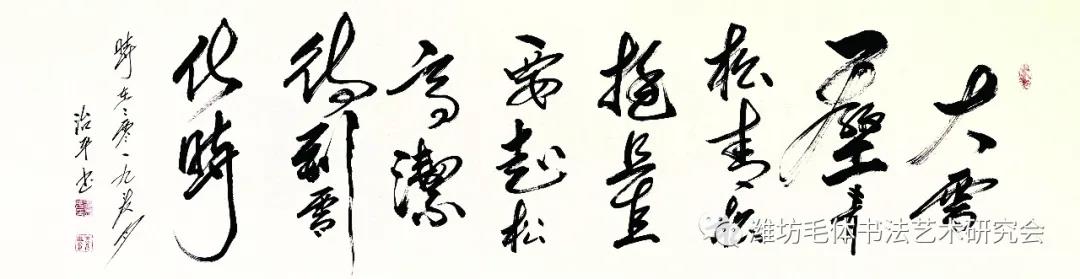 大雪
壓青
松青松
挺且直
要知松
高潔
待到雪
化時
時在二零一九
治平书
潍坊毛体书法艺术研究会